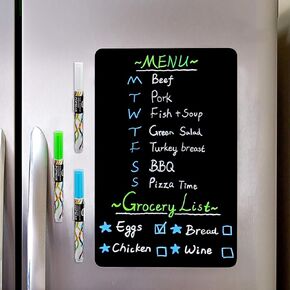 ~MENU~
M Beef
T Pork
W Fish + Soup
T Green Salad
F Turkey breast
S BBQ
S Pizza Time
~Grocery List~
Eggs Bread
Chicken Wine